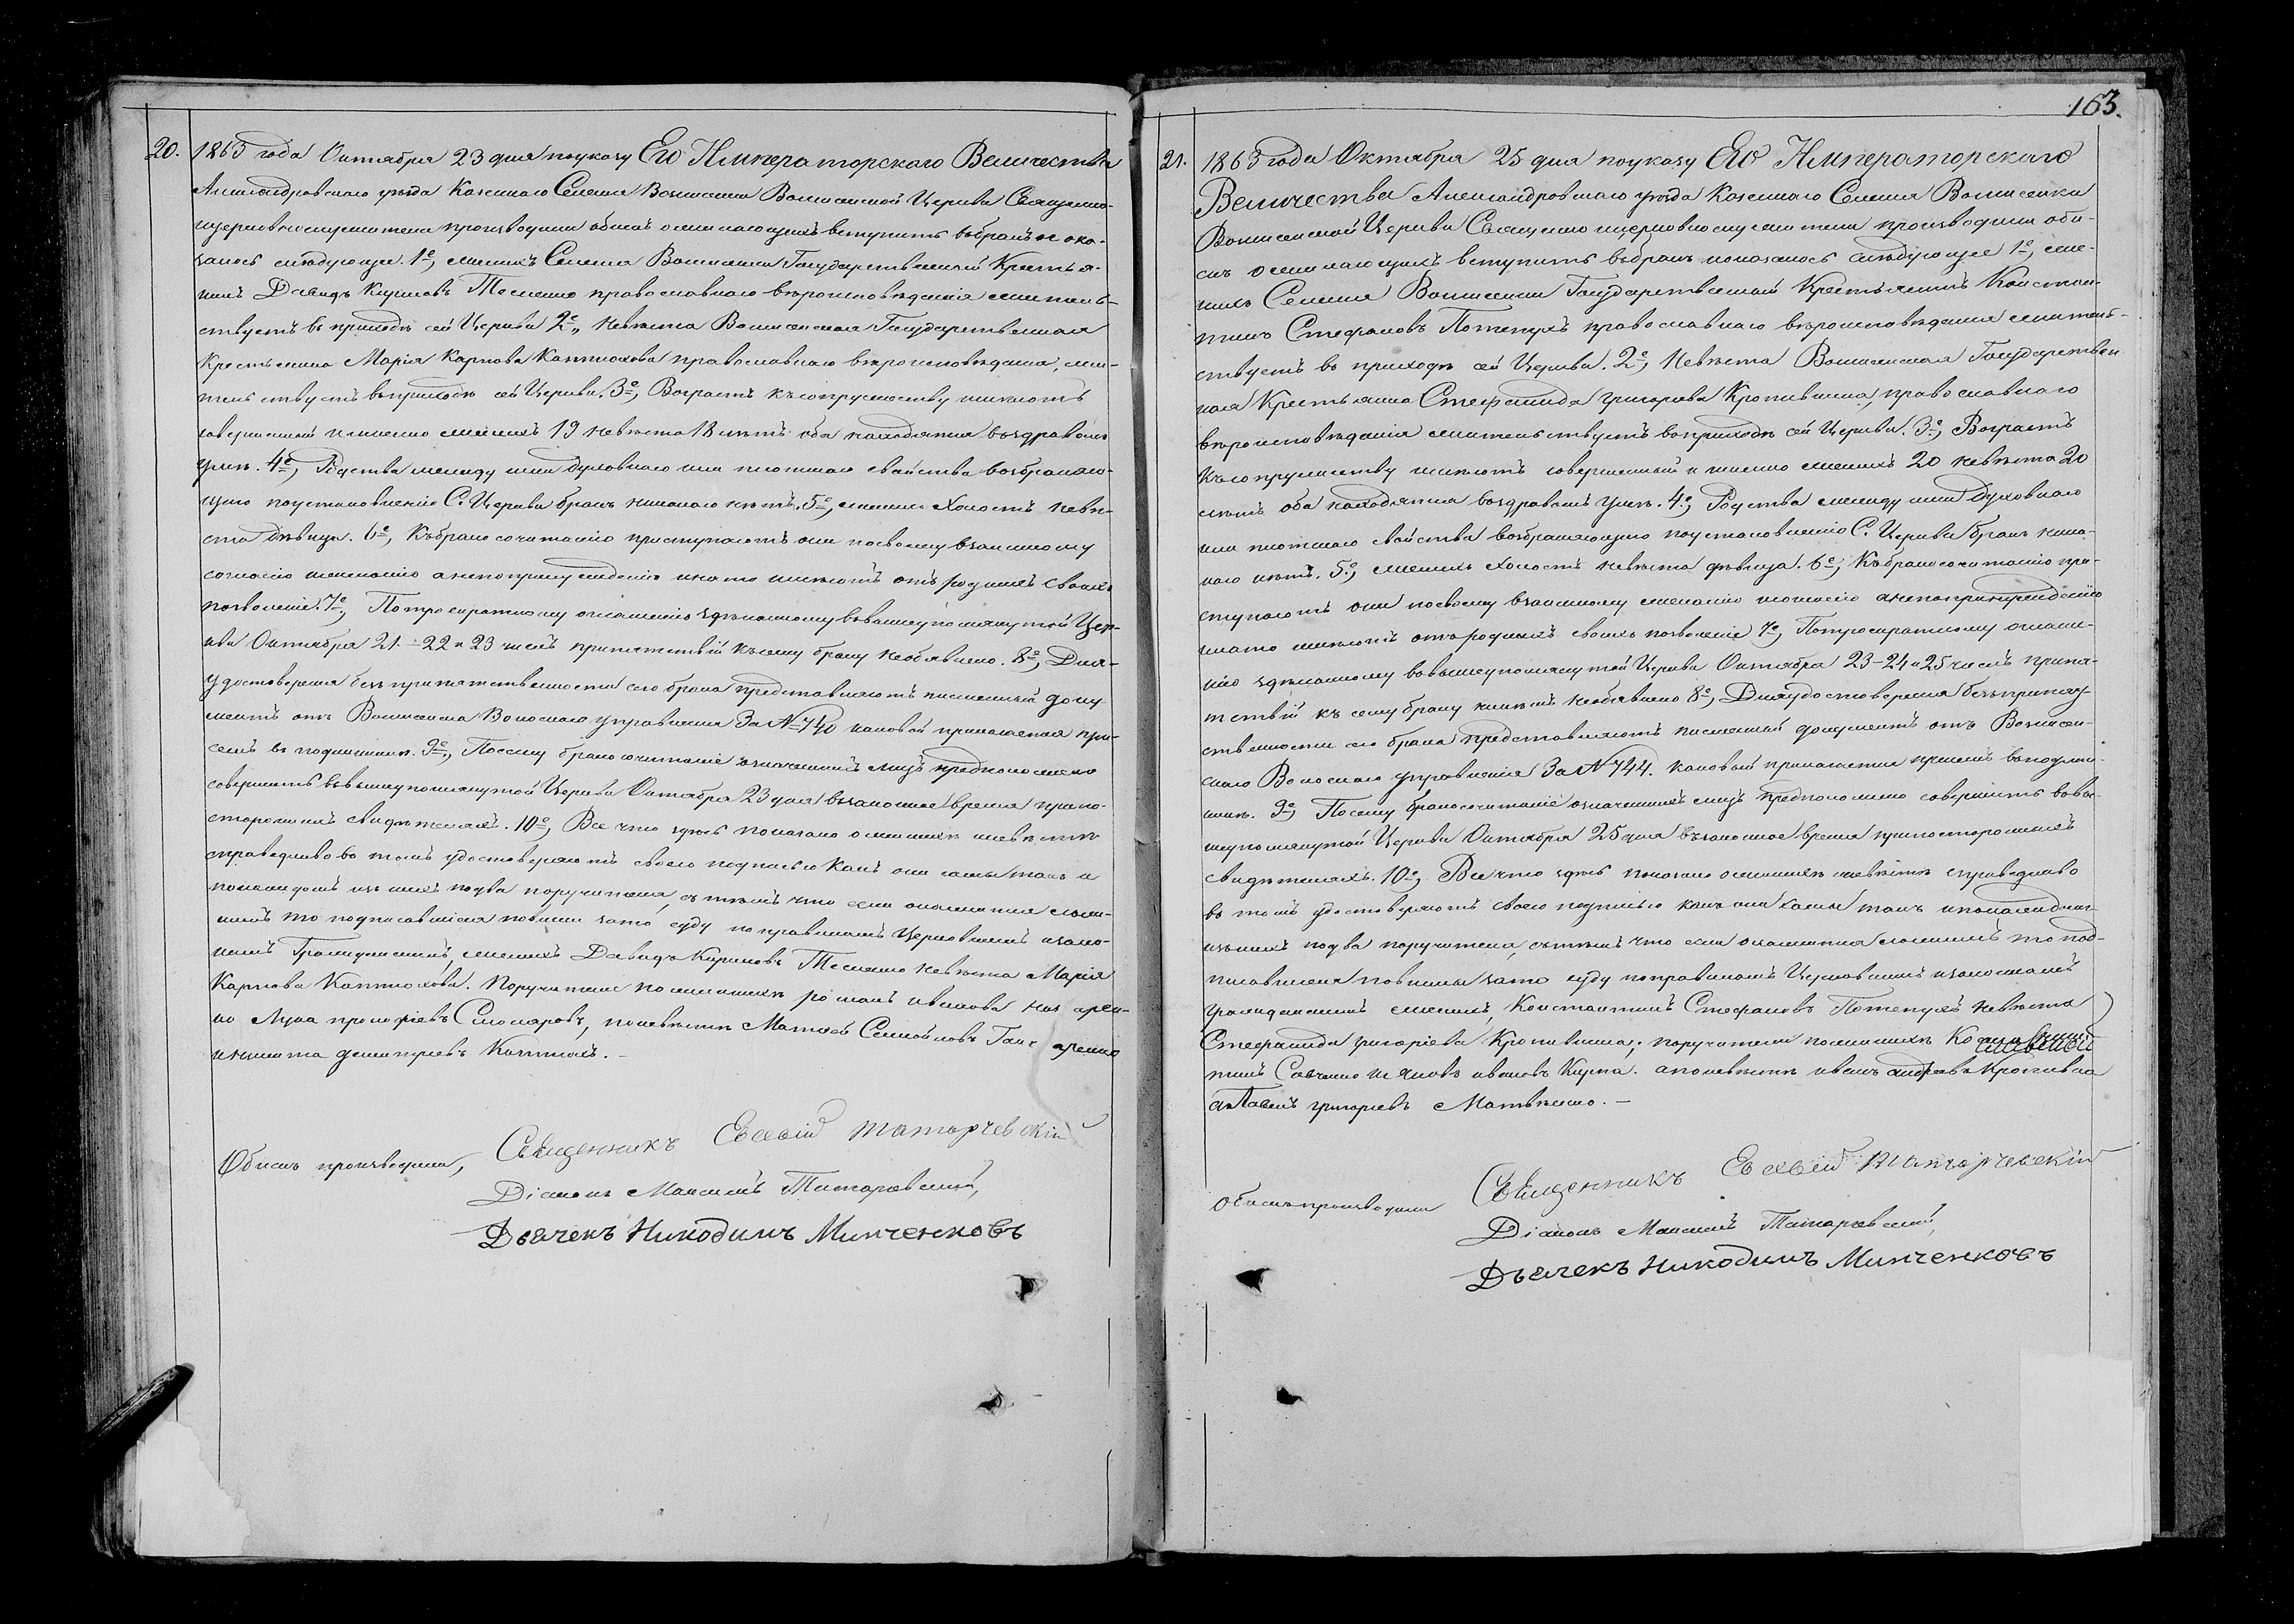 163.
20. 1865 года Октября 23 дня поуказу Его Императорскаго Величества
Александровскаго уѣзда Казеннаго Селенія Воскресенской Церкви Священно-
церковнослужители производили обыскъ о желающихъ вступить въбракъ и ока-
залось слѣдующее. 1е, женихъ Селенія Государственный Крестья-
нинъ Давидъ Кириловъ Тесленко православнаго вѣроисповѣданія жительст-
ствуетъ въ приходѣ сей Церкви 2е, Невѣста Государственная
Крестьянка Марія Карпова Каптюхова православнаго вѣроисповѣданія, жи-
тельствуетъ въприходѣ сей Церкви. 3е, Возрастъ къ супружеству имѣютъ
совершенный и именно женихъ 19 невѣста 18 лѣтъ оба находятся въздравомъ
умѣ. 4е, Родства между ими духовнаго или плотскаго свойства возбраняю-
щаго поустановленію С. Церкви бракъ никакого нѣтъ. 5е, женихъ Холостъ невѣ-
ста дѣвица. 6е, Къбракосочитанію приступаютъ они посвоему взаимному
согласію и желанію а непопринужденію и нато имѣютъ отъ родныхъ своихъ
позволеніе. 7е, Потроекратному оглашенію здѣланному ввышеупомянутой Цер-
кви Октября 21. - 22 и 23 чиселъ препятствій къ сему браку необявлено. 8е, Для-
удостоверенія безъ препятственности сего брака представляютъ писменный доку-
ментъ отъ Волоснаго управленія За №740 каковой прилагается при-
семъ въ подлинникѣ. 9е, Посему бракосочитаніе означенныхъ лицъ предположено
совершить ввышеупомянутой Церкви Октября 23 дня взаконное время припо-
стороннихъ свидѣтеляхъ. 10е, Все что здѣсь показано о женихѣ и невѣстѣ
справедливо въ томъ удостоверяютъ своею подписью какъ они самы такъ и
покаждомъ изъ нихъ подва поручителя, съ тѣмъ что если окажется лож-
нымъ то подписавшіеся повинны зато суду поправиламъ Церковнымъ и зако-
намъ Гражданскимъ, женихъ Давидъ Кириловъ Тесленко невѣста Марія
Карпова Каптюхова. Поручители поженихѣ романъ ивановъ
но Лука прокофіевъ Столяровъ, поневѣстѣ Матвей
иникита дмитріевъ Каптюхъ. -
Обыскъ производили, Священникъ Евсевій
Діаконъ Максимъ Татаровскій,
Дьячекъ Никодимъ Минченковъ
21. 1865 года Октября 25 дня поуказу Его Императорскаго
Величества Александровскаго уѣзда Казеннаго Селенія
Церкви Священно ицерковнослужители производили обы-
скъ о желающихъ вступить въбракъ ипоказалось слѣдующее 1е, же-
нихъ Селенія Государственный Крестьянинъ Констан-
тинъ Стефановъ Потапухъ православнаго вѣроисповѣданія жительст-
ствуетъ въ приходѣ сей Церкви. 2е, Невѣста Государствен
ная Крестьянка Стефанида григорьева Кропивина, православнаго
вѣроисповѣданія жительствуетъ въприходѣ сей Церкви. 3е, Возрастъ
къ супружеству имѣютъ совершенный и именно женихъ 20 невѣста 20
лѣтъ оба находятся въздравомъ умѣ. 4е, Родства между ими духовнаго
или плотскаго свойства возбраняющаго поустановленію С. Церкви бракъ ника-
каго нѣтъ. 5е, женихъ холостъ невѣста дѣвица. 6е, Къбракосочитанію при-
ступаютъ они посвоему взаимному желанію исогласію анепопринужденію
инато имѣютъ отъродныхъ своихъ позволеніе 7е, Потроекратному оглаше-
нію здѣланному ввышеупомянутой Церкви Октября 23 - 24 и 25 чиселъ препя-
тствій къ сему браку никѣмъ необявлено 8е, Дляудостоверенія безъпрепят-
ственности сего брака представляютъ писменный документъ отъ
скаго Волоснаго управленія За №744. каковый прилагается присемъ въподлин-
никѣ. 9е, Посему бракосочитаніе означенныхъ лицъ предположено совершить ввы-
шеупомянутой Церкви Октября 25 дня взаконное время припостороннихъ
свидѣтеляхъ. 10е, Все что здѣсь показано о женихѣ иневѣстѣ справедливо
въ томъ удостоверяютъ своею подписью какъ они самы такъ ипокаждому
изънихъ подва поручителя, стѣмъ что если окажется ложнымъ то под-
писавшіеся повинны зато суду поправиламъ Церковнымъ изаконамъ
гражданскимъ женихъ, Константинъ Стефановъ Потапухъ невѣста
Стефанида григоріева Кропивина; поручители поженихѣ
Савченко и яковъ ивановъ Кирпа. апоневѣстѣ иванъ андреевъ Кропивка
григорьевъ Матвѣенко. -
Обыскъ производили Священникъ Евсевій
Діаконъ Максимъ Татаровскій,
Дьячекъ Никодимъ Минченковъ